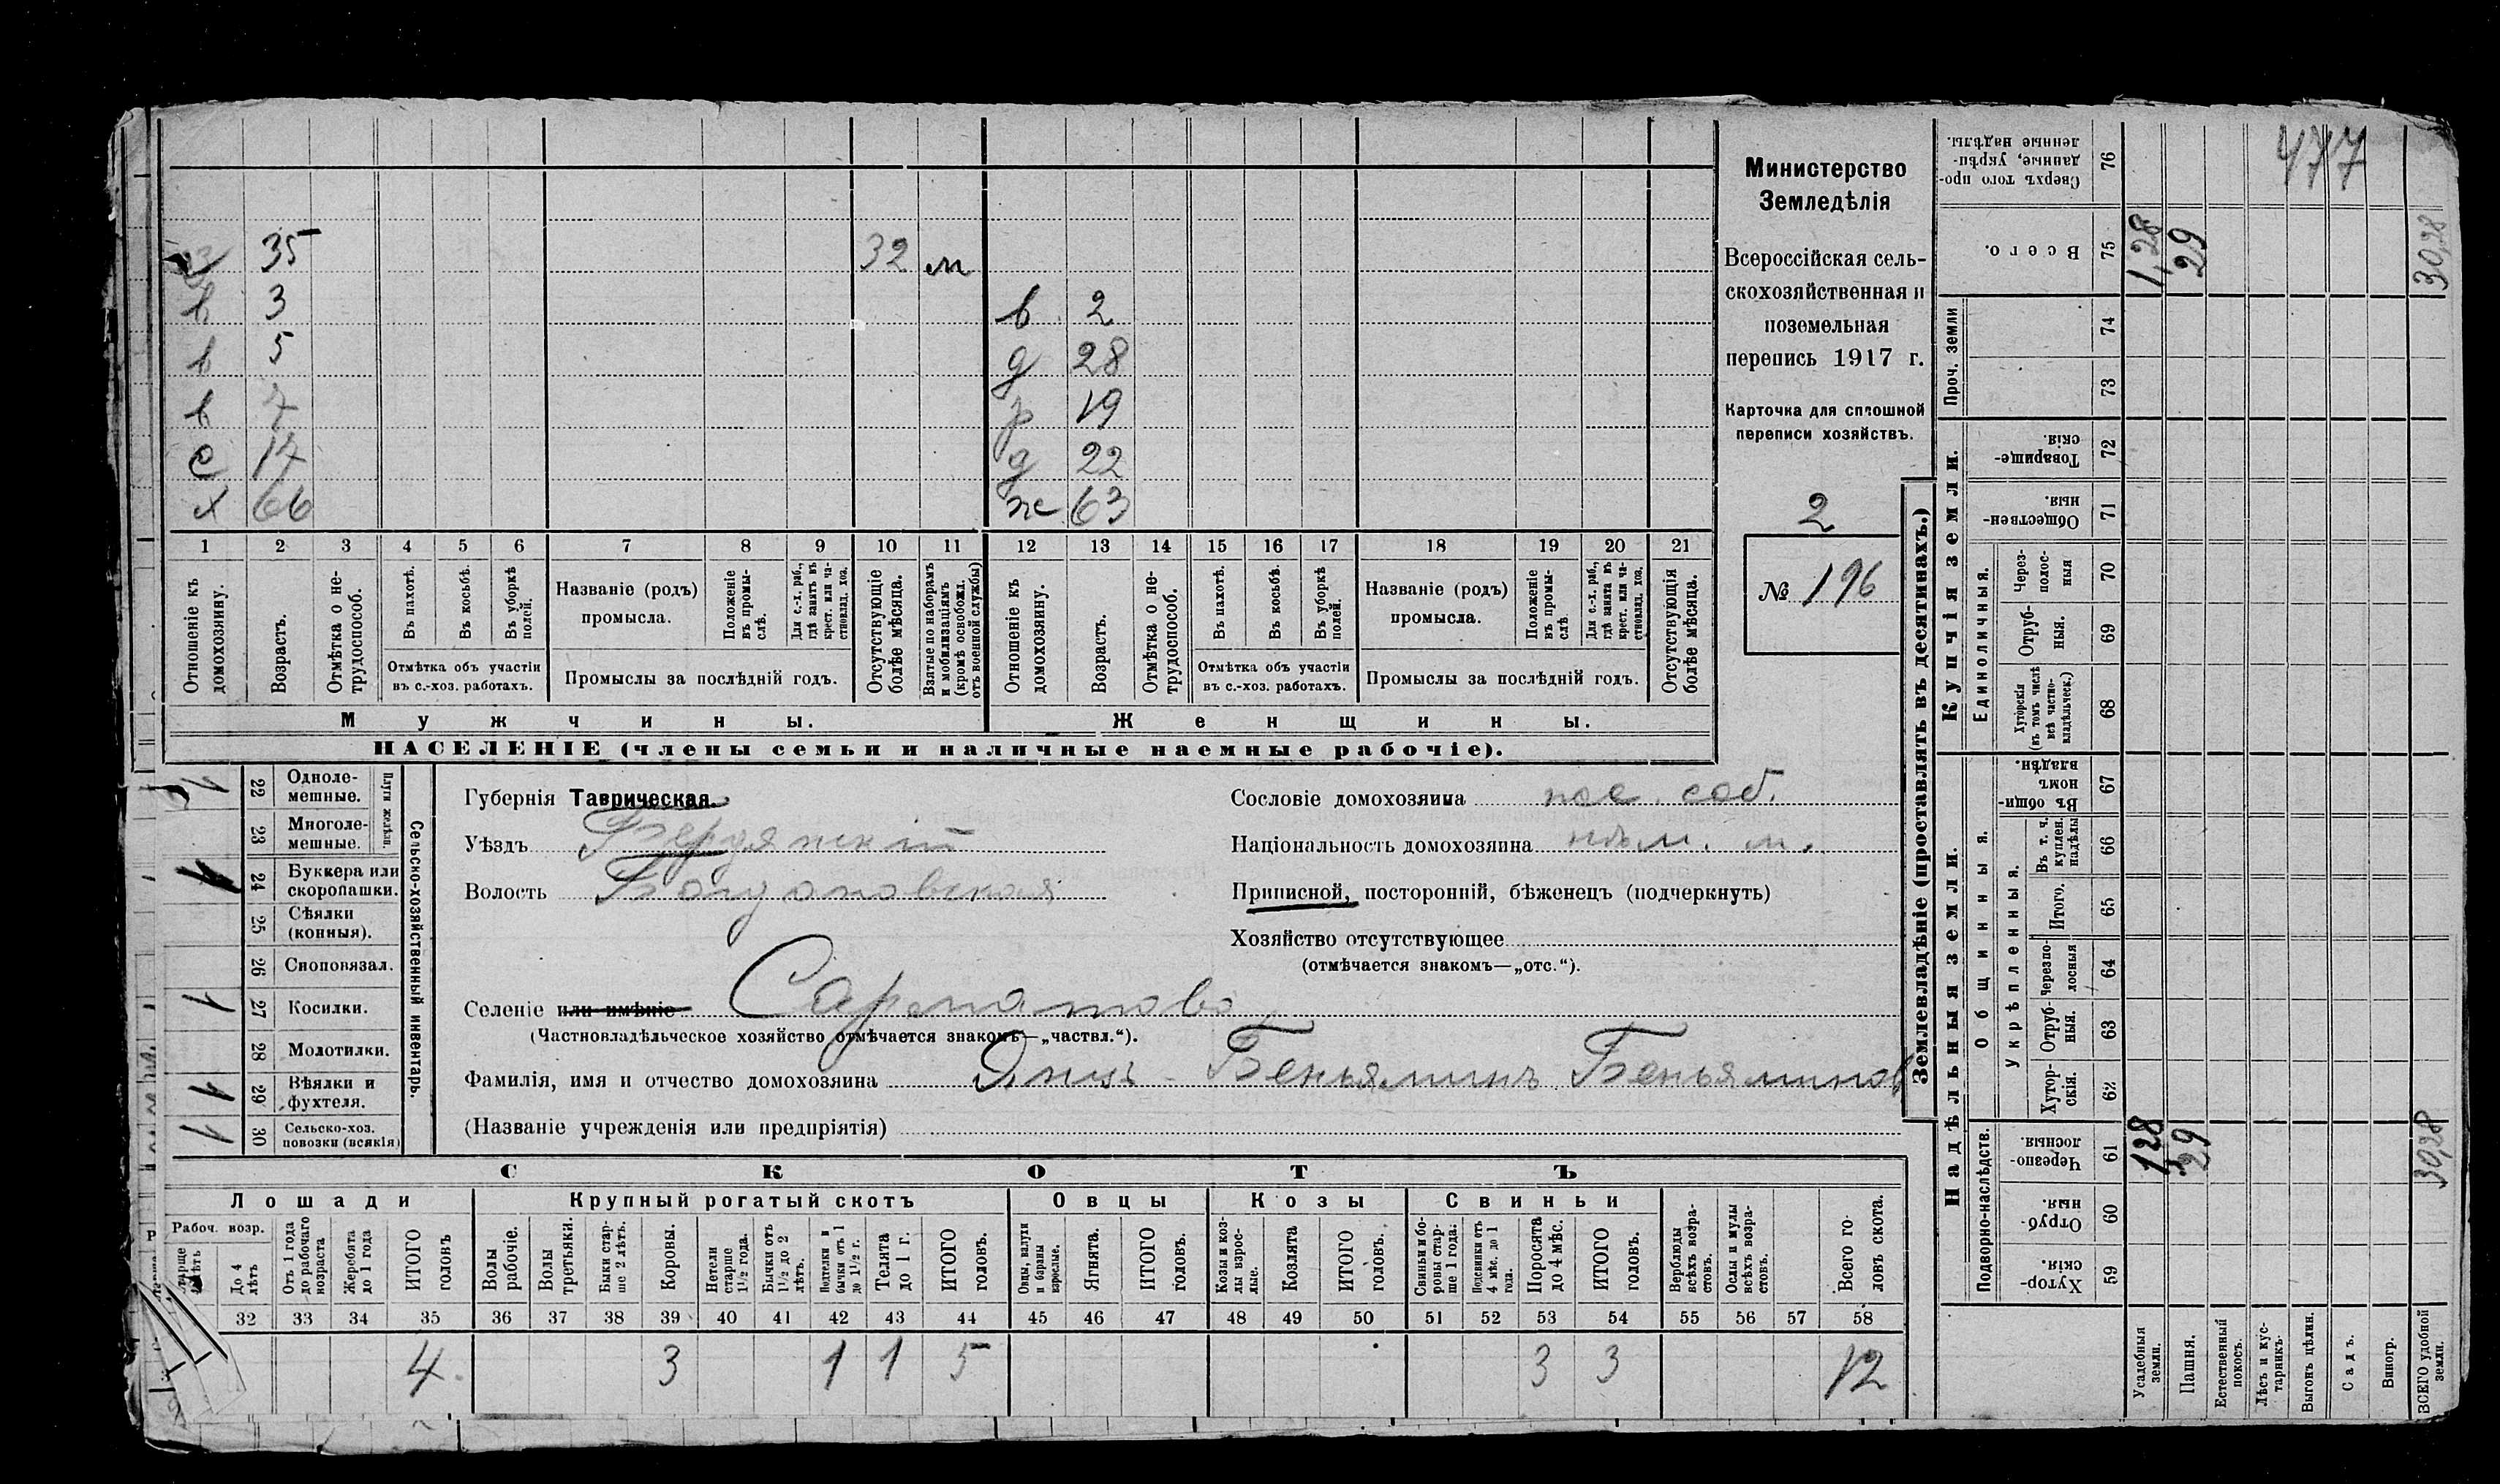 477
35 32 м
в 3 в 2
в 5 д 28
в 7 р 19
с 17 д 22
х 66 ж 63
1 2 3 4 5 6 7 8 9 10 11 12 13 14 15 16 17 18 19 20 21
Отношеніе къ домохозяину.
Возрастъ.
Отмѣтка о не-
трудоспособ.
Въ пахотѣ.
Въ косьбѣ.
Въ уборкѣ
полей.
Отмѣтка объ участіи
въ с.-хоз. работахъ.
Названіе (родъ)
промысла.
Положеніе
въ промы-
слѣ.
Для с.-х. раб.,
гдѣ занятъ въ
крест. или ча-
стновлад. хоз.
Промыслы за послѣдній годъ.
Отсутствующіе
болѣе мѣсяца.
Взятые по наборамъ
и мобилизаціямъ
(кромѣ освобожд.
отъ военной службы)
Отношеніе къ
домохозяину.
Возрастъ.
Отмѣтка о не-
трудоспособ.
Въ пахотѣ.
Въ косьбѣ.
Въ уборкѣ
полей.
Отмѣтка объ участіи
въ с.-хоз. работахъ.
Названіе (родъ)
промысла.
Положеніе
въ промы-
слѣ.
Для с.-х. раб.,
гдѣ занята въ
крест. или ча-
стновлад. хоз.
Промыслы за послѣдній годъ.
Отсутствующія
болѣе мѣсяца.
Мужчины.
Женщины.
НАСЕЛЕНІЕ (члены семьи и наличные наемные рабочіе).
Министерство
Земледѣлія
Всероссійская сель-
скохозяйственная и
поземельная
перепись 1917 г.
Карточка для сплошной
переписи хозяйствъ.
2
№ 196
Сельско-хозяйственный инвентарь.
Плуги желѣзн.
1 22 Одноле-
мешные.
23 Многоле-
мешные.
1 24 Буккера или
скоропашки.
25 Сѣялки
(конныя).
26 Сноповязал.
1 27 Косилки.
28 Молотилки.
1 29 Вѣялки и
фухтеля.
1 30 Сельско-хоз.
повозки (всякія)
Губернія Таврическая.
Уѣздъ Бердянскій
Волость Богдановская
Селеніе или имѣніе Сарпатово
(Частновладѣльческое хозяйство отмѣчается знакомъ—„частвл.“).
Фамилія, имя и отчество домохозяина Янцъ Беньяминъ Беньяминов
(Названіе учрежденія или предпріятія)
Сословіе домохозяина пос. соб.
Національность домохозяина нѣм. м.
Приписной, посторонній, бѣженецъ (подчеркнуть)
Хозяйство отсутствующее
(отмѣчается знакомъ—„отс.“).
СКОТЪ
Лошади
Крупный рогатый скотъ
Овцы
Козы
Свиньи
Рабоч. возр.
До 4
лѣтъ
Отъ 1 года
до рабочаго
возраста
Жеребята
до 1 года
ИТОГО
головъ
Волы
рабочіе.
Волы
третьяки.
Быки стар-
ше 2 лѣтъ.
Коровы.
Нетели
старше
1½ года.
Бычки отъ
1½ до 2
лѣтъ.
Подтелки и
бычки отъ 1
до 1½ г.
Телята
до 1 г.
ИТОГО
головъ.
Овцы, валухи
и бараны
взрослые.
Ягнята.
ИТОГО
головъ.
Козы и коз-
лы взрос-
лые.
Козлята
ИТОГО
головъ.
Свиньи и бо-
ровы стар-
ше 1 года.
Подсвинки отъ
4 мѣс. до 1
года.
Поросята
до 4 мѣс.
ИТОГО
головъ.
Верблюды
всѣхъ возра-
стовъ.
Ослы и мулы
всѣхъ возра-
стовъ.
Всего го-
ловъ скота.
32 33 34 35 36 37 38 39 40 41 42 43 44 45 46 47 48 49 50 51 52 53 54 55 56 57 58
4 3 1 1 5 3 3 12
Землевладѣніе (проставлять въ десятинахъ.)
Надѣльныя земли.
Купчія земли.
Проч. земли
Подворно-наслѣдств.
Общинныя.
Укрѣпленныя.
Единоличныя.
Хутор-
скія. 59
Отруб-
ныя. 60
Черезпо-
лосныя. 61 1,28 29 30,28
Хутор-
скія. 62
Отруб-
ныя. 63
Черезпо-
лосныя 64
Итого. 65
Въ т. ч.
куплен.
надѣлы 66
Въ общин-
номъ
владѣн. 67
Хуторскія
(въ томъ числѣ
всѣ частно-
владѣльческ.) 68
Отруб-
ныя. 69
Через-
полос-
ныя 70
Обществен-
ныя. 71
Товарище-
скія. 72
73
74
Всего. 75 1,28 29 30,28
Сверхъ того про-
данные, укрѣп-
ленные надѣлы. 76
Усадебныя
земли.
Пашня.
Естественный
покосъ.
Лѣсъ и кус-
тарникъ.
Выгонъ цѣлин.
Садъ.
Виногр.
ВСЕГО удобной
земли.